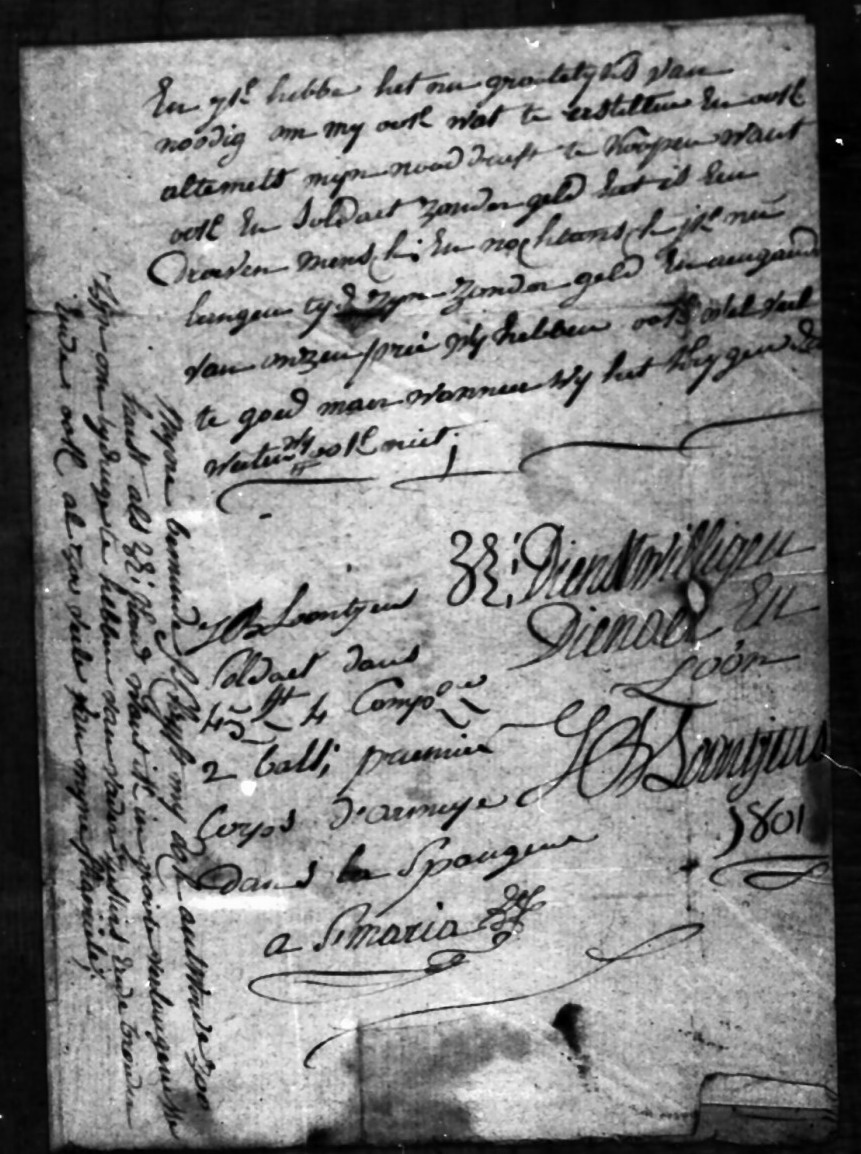 En yk hebbe het nu grootelyks van
noodig om my ook wat te erstellen En ook
altemets mijn nooddruft te koopen want
ook En Soldaet zonder geld dat is Eene
droeven mensch; En nochtans ik nu
langen tyd zyn zonder geld En aengaende
van onzen preé wy hebben ook wel veel
te goed maer wanneer wy het krygen dat
weeten wy ook niet.
UE: Dienstwilligen
Dienaer En
Zoon
J B Loontjens
1801
J B Loontjens
Soldaet dans
4 Comp
2 Batt; premier
Corps d'armeye
dans la Spangene
a S maria
Myne beminde schryft my dog antwoorde zoo
haest als UE: kond want ik in groote verlangen
zyn om tydinge te hebben van vader zusters Ende broeders
Ende ook al van myne famiele;